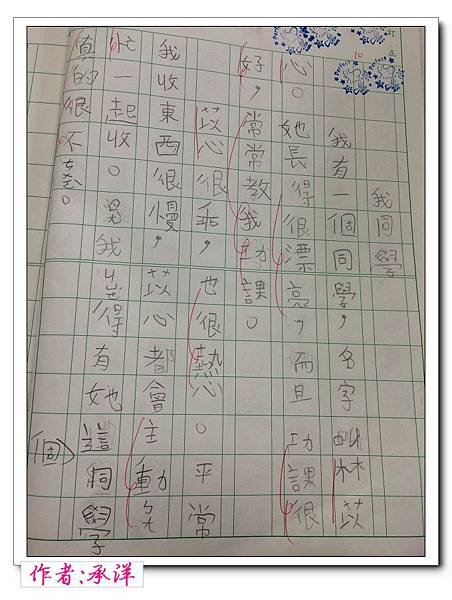 訂正
10
Perfect
Perfect
我同學
我有一個同學，名字叫林苡
心。她長得很漂亮，而且功課很
好，常常教我功課。
苡心很乖，也很熱心。平常
我收東西很慢，苡心都會主動ㄅ
忙起收。我覺得有她這同學
(個)
真的很不。
作者:承洋